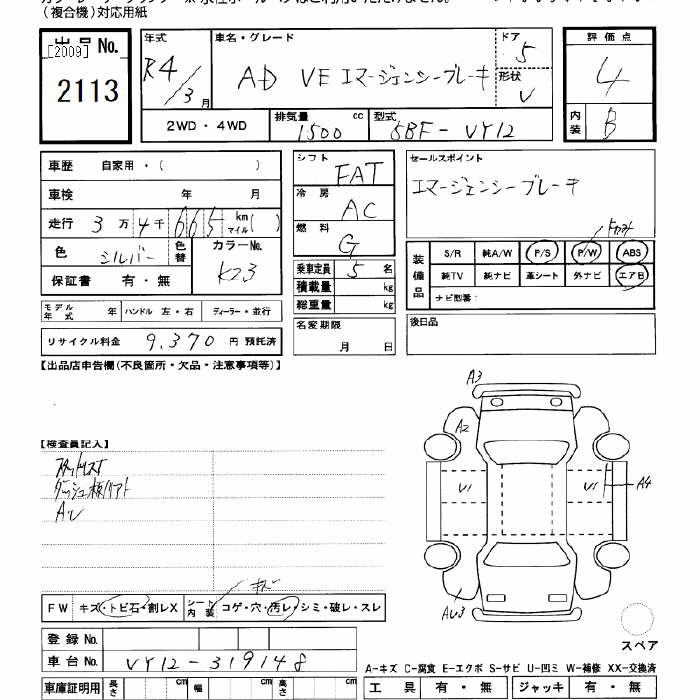 (複合機)対応用紙
出品 No.
[2009]
2113
年式 R4/3月
車名・グレード AD VE エマージェンシーブレーキ
ドア 5
形状 V
評価点 4
内装 B
2WD・4WD
排気量 1500 cc
型式 5BF-VY12
車歴 自家用・( )
車検 年 月
走行 3万4千665 km マイル( )
色 シルバー 色替 カラーNo. K23
保証書 有・無
シフト FAT
冷房 AC
燃料 G
乗車定員 5 名
積載量 kg
総重量 kg
セールスポイント
エマージェンシーブレーキ
装備品 S/R 純A/W P/S P/W ABS
純TV 純ナビ 革シート 外ナビ エアB
ナビ型番:
モデル年式 年 ハンドル 左・右 ディーラー・並行
リサイクル料金 9,370 円 預託済
名変期限 月 日
後日品
【出品店申告欄(不良箇所・欠品・注意事項等)】
A3
A2
【検査員記入】
V1 V1 A4
AU3
FW キズ・トビ石・割レX シート内装 コゲ・穴・汚レ・シミ・破レ・スレ
登録 No.
車台 No. VY12-319148
スペア
A-キズ C-腐食 E-エクボ S-サビ U-凹ミ W-補修 XX-交換済
車庫証明用 長さ cm 幅 cm 高さ cm
工具 有・無 ジャッキ 有・無